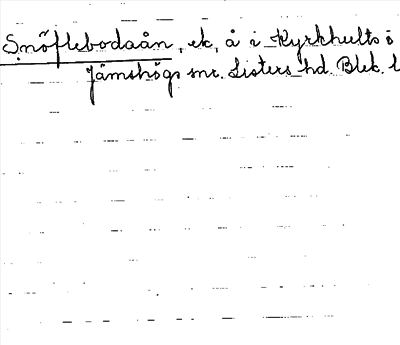 Snöflebodaån, ek, å i Kyrkhults o
Jämshögs snr. Listers hd. Blek. l